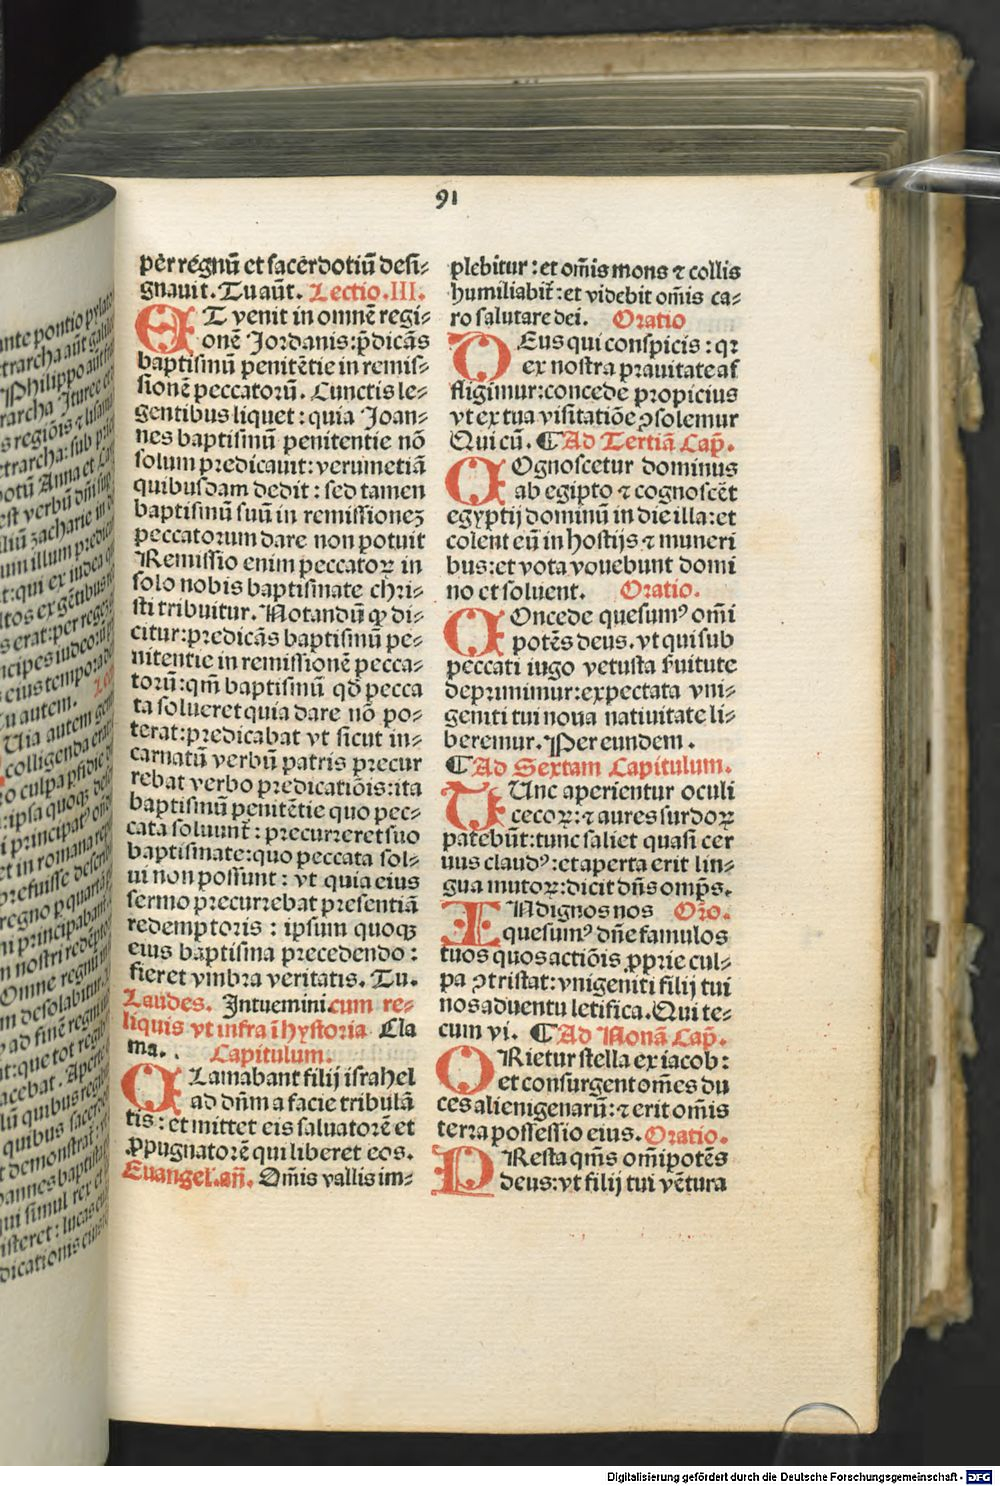 91
per regnū et sacerdotiū desi⸗
gnauit. Tu aūt. Lectio. III.
ET venit in omnē regi⸗
onē Jordanis: p̄dicās
baptismū penitētie in remis⸗
sionē peccatorū. Cunctis le⸗
gentibus liquet: quia Joan⸗
nes baptismū penitentie nō
solum predicauit: verumetiā
quibusdam dedit: sed tamen
baptismū suū in remissioneꝫ
peccatorum dare non potuit
Remissio enim peccatoꝝ in
solo nobis baptismate chri⸗
sti tribuitur. Notandū ꝙ di⸗
citur: predicās baptismū pe⸗
nitentie in remissionē pecca⸗
torū: qm̄ baptismū qd̄ pecca
ta solueret quia dare nō po⸗
terat: predicabat vt sicut in⸗
carnatū verbū patris precur
rebat verbo predicatiōis: ita
baptismū penitētie quo pec⸗
cata soluunt̄: precurreret suo
baptismate: quo peccata sol⸗
ui non possunt: vt quia eius
sermo precurrebat presentiā
redemptoris: ipsum quoqꝫ
eius baptisma precedendo:
fieret vmbra veritatis. Tu.
Laudes. Intuemini. cum re⸗
liquis vt infra ī hystoria Cla
ma. . Capitulum.
CLamabant filij israhel
ad dn̄m a facie tribulā
tis: et mittet eis saluatorē et
ꝓpugnatorē qui liberet eos.
Euangel. an̄. Om̄is vallis im⸗
plebitur: et om̄is mons ⁊ collis
humiliabit̄: et videbit om̄is ca⸗
ro salutare dei. Oratio
DEus qui conspicis: qꝛ
ex nostra prauitate af
fligimur: concede propicius
vt ex tua visitatiōe ꝯsolemur
Qui cū. ¶ Ad Tertiā Cap̄.
COgnoscetur dominus
ab egipto ⁊ cognoscēt
egyptij dominū in die illa: et
colent eū in hostijs ⁊ muneri
bus: et vota vouebunt domi
no et soluent. Oratio.
COncede quesumꝰ om̄i
potēs deus. vt qui sub
peccati iugo vetusta s̄uitute
deprimimur: expectata vni⸗
geniti tui noua natiuitate li⸗
beremur. Per eundem.
¶ Ad Sextam Capitulum.
TUnc aperientur oculi
cecoꝝ: ⁊ aures surdoꝝ
patebūt: tunc saliet quasi cer
uus claudꝰ: et aperta erit lin⸗
gua mutoꝝ: dicit dn̄s omp̄s.
INdignos nos Orō.
quesumꝰ dn̄e famulos
tuos quos actiōis ꝓprie cul⸗
pa ꝯtristat: vnigeniti filij tui
nos aduentu letifica. Qui te⸗
cum vi. ¶ Ad Nonā Cap̄.
ORietur stella ex iacob:
et consurgent om̄es du
ces alienigenarū: ⁊ erit om̄is
terra possessio eius. Oratio.
PResta qm̄s om̄ipotēs
deus: vt filij tui vētura
Digitalisierung gefördert durch die Deutsche Forschungsgemeinschaft - DFG